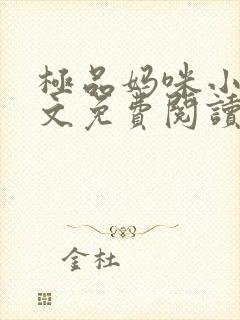 極品妈咪小
文免費閱讀
金杜